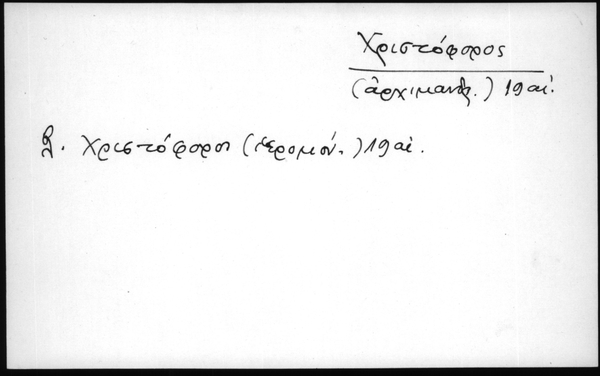 Χριστόφορος
(ἀρχιμανδ.) 19 αἰ.
βλ. Χριστόφορος (ἱερομόν.) 19 αἰ.